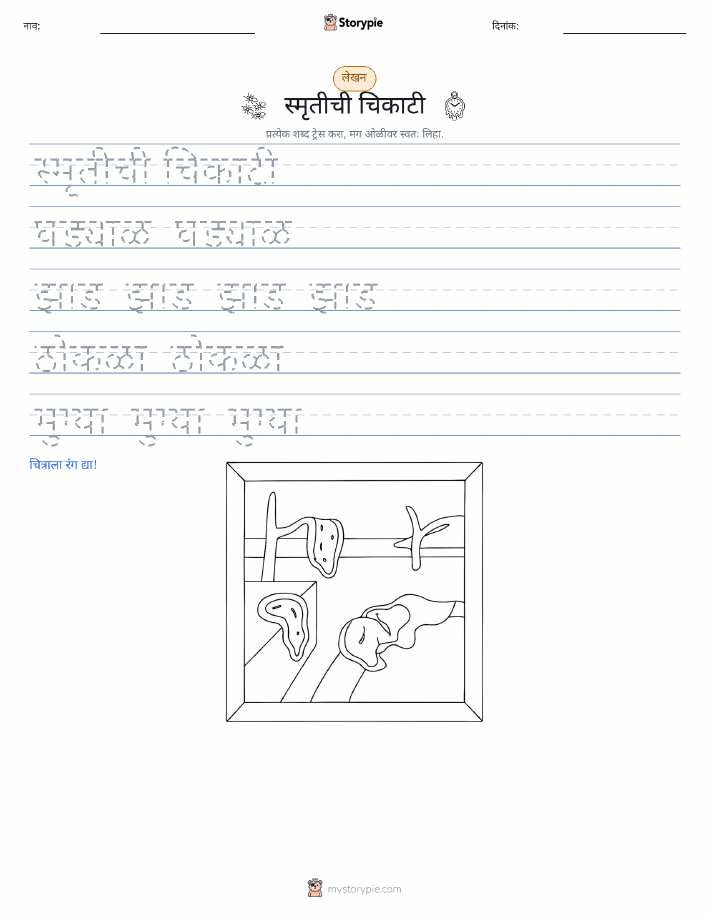 नाव:
Storypie
दिनांक:
लेखन
स्मृतीची चिकाटी
प्रत्येक शब्द ट्रेस करा, मग ओळीवर स्वतः लिहा.
स्मृतीची चिकाटी
घड्याळ घड्याळ
झाड झाड झाड झाड
ठोकळा ठोकळा
मुग्धा मुग्धा मुग्धा
चित्राला रंग द्या!
mystorypie.com